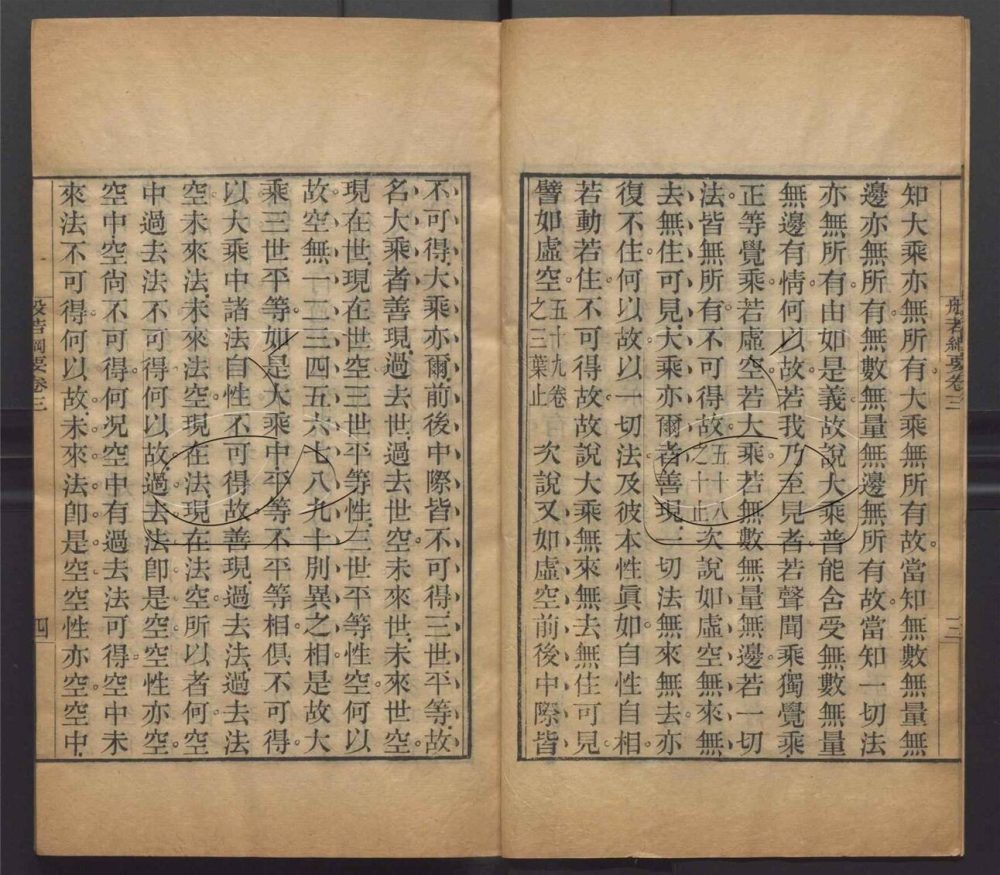 般若綱要卷三
三
知大乘亦無所有大乘無所有故當知無數無量無
邊亦無所有無數無量無邊無所有故當知一切法
亦無所有由如是義故說大乘普能舍受無數無量
無邊有情何以故若我乃至見者若聲聞乘獨覺乘
正等覺乘若虛空若大乘若無數無量無邊若一切
法皆無所有不可得故五十八之十止次說如虛空無來無
去無住可見大乘亦爾者善現一切法無來無去亦
復不住何以故以一切法及彼本性眞如自性自相
若動若住不可得故故說大乘無來無去無住可見
譬如虛空五十九卷之三葉止次說又如虛空前後中際皆
不可得大乘亦爾前後中際皆不可得三世平等故
名大乘者善現過去世過去世空未來世未來世空
現在世現在世空三世平等性三世平等性空何以
故空無一二三四五六七八九十別異之相是故大
乘三世平等如是大乘中平等不平等相俱不可得
以大乘中諸法自性不可得故善現過去法過去法
空未來法未來法空現在法現在法空所以者何空
中過去法不可得何以故過去法卽是空空性亦空
空中空尙不可得何况空中有過去法可得空中未
來法不可得何以故未來法卽是空空性亦空空中
般若綱要卷三
四